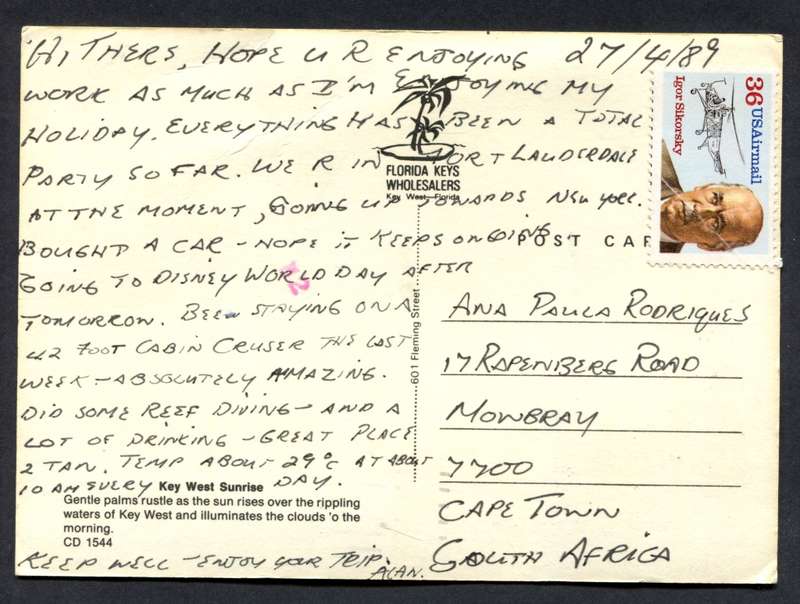 Hi THERE, HOPE U R ENJOYING 27/4/89
WORK AS MUCH AS I'M ENJOYING MY
HOLIDAY. EVERYTHING HAS BEEN A TOTAL
PARTY SO FAR. WE R IN FORT LAUDERDALE
AT THE MOMENT, GOING UP TOWARDS NEW YORK.
BOUGHT A CAR - HOPE IT KEEPS ON GOING
GOING TO DISNEY WORLD DAY AFTER
TOMORROW. BEEN STAYING ON A
42 FOOT CABIN CRUSER THE LAST
WEEK - ABSOLUTELY AMAZING.
DID SOME REEF DIVING - AND A
LOT OF DRINKING - GREAT PLACE
2 TAN. TEMP ABOUT 29°C AT ABOUT
10 AM EVERY DAY.
KEEP WELL - ENJOY YOUR TRIP.
ALAN.
FLORIDA KEYS
WHOLESALERS
Key West, Florida
601 Fleming Street
POST CAR
36 USAirmail
Igor Sikorsky
ANA PAULA RODRIQUES
17 RAPENBERG ROAD
MOWBRAY
7700
CAPE TOWN
SOUTH AFRICA
Key West Sunrise
Gentle palms rustle as the sun rises over the rippling
waters of Key West and illuminates the clouds 'o the
morning.
CD 1544